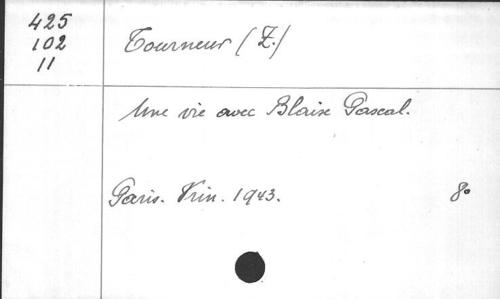 425
102
11
Tourneur (Z.)
Une vie avec Blaise Pascal.
Paris. Vrin. 1943. 8°